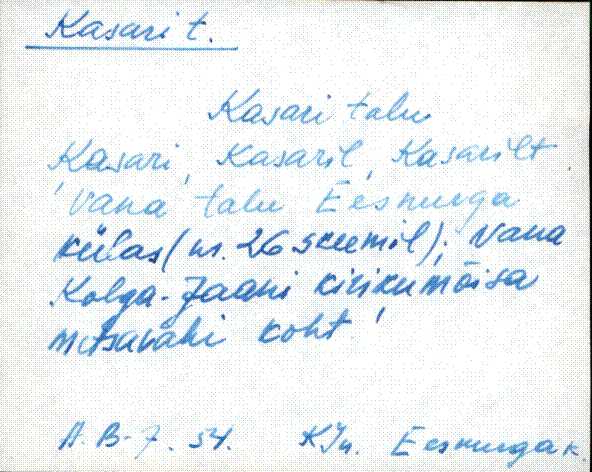 Kasari t.
Kasari talu
Kasari, Kasaril, Kasarilt.
Vana talu Eesnurga
külas (nr. 26 skeemil). Vana
Kolga-Jaani kirikumõisa
metsavahi koht.
A. B-7. 54. KJn. Eesnurga k.